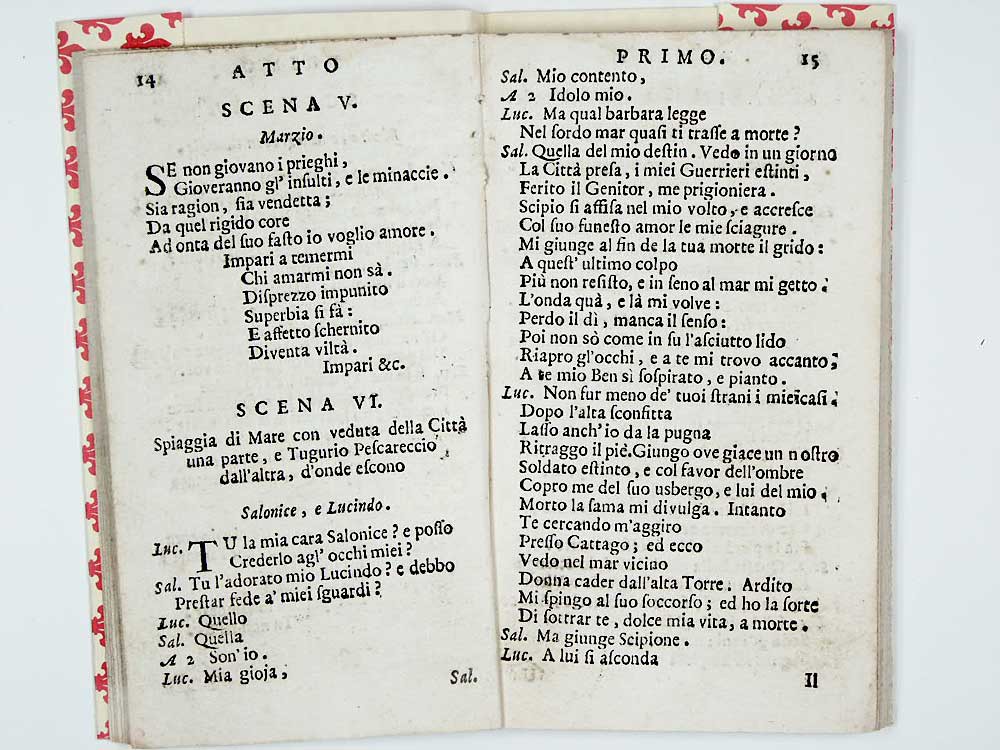 14 ATTO
SCENA V.
Marzio.
SE non giovano i prieghi,
Gioveranno gl' inſulti, e le minaccie.
Sia ragion, ſia vendetta;
Da quel rigido core
Ad onta del ſuo faſto io voglio amore.
Impari a temermi
Chi amarmi non sà.
Diſprezzo impunito
Superbia ſi fà:
E affetto ſchernito
Diventa viltà.
Impari &c.
SCENA VI.
Spiaggia di Mare con veduta della Città
una parte, e Tugurio Peſcareccio
dall'altra, d'onde eſcono
Salonice, e Lucindo.
Luc. TU la mia cara Salonice? e poſſo
Crederlo agl' occhi miei?
Sal. Tu l'adorato mio Lucindo? e debbo
Preſtar fede a' miei ſguardi?
Luc. Quello
Sal. Quella
A 2 Son' io.
Luc. Mia gioja,
Sal.
PRIMO. 15
Sal. Mio contento,
A 2 Idolo mio.
Luc. Ma qual barbara legge
Nel ſordo mar quaſi ti traſſe a morte?
Sal. Quella del mio deſtin. Vedo in un giorno
La Città preſa, i miei Guerrieri eſtinti,
Ferito il Genitor, me prigioniera.
Scipio ſi affiſa nel mio volto, e accreſce
Col ſuo funeſto amor le mie sciagure.
Mi giunge al fin de la tua morte il grido:
A queſt' ultimo colpo
Più non reſiſto, e in ſeno al mar mi getto.
L'onda quà, e là mi volve:
Perdo il dì, manca il ſenſo:
Poi non sò come in ſu l'aſciutto lido
Riapro gl'occhi, e a te mi trovo accanto;
A te mio Ben sì ſoſpirato, e pianto.
Luc. Non fur meno de' tuoi ſtrani i miei caſi.
Dopo l'alta ſconfitta
Laſſo anch'io da la pugna
Ritraggo il piè. Giungo ove giace un noſtro
Soldato eſtinto, e col favor dell'ombre
Copro me del ſuo usbergo, e lui del mio.
Morto la fama mi divulga. Intanto
Te cercando m'aggiro
Preſſo Cartago; ed ecco
Vedo nel mar vicino
Donna cader dall'alta Torre. Ardito
Mi ſpingo al ſuo ſoccorſo; ed ho la ſorte
Di ſottrar te, dolce mia vita, a morte.
Sal. Ma giunge Scipione.
Luc. A lui ſi aſconda
Il